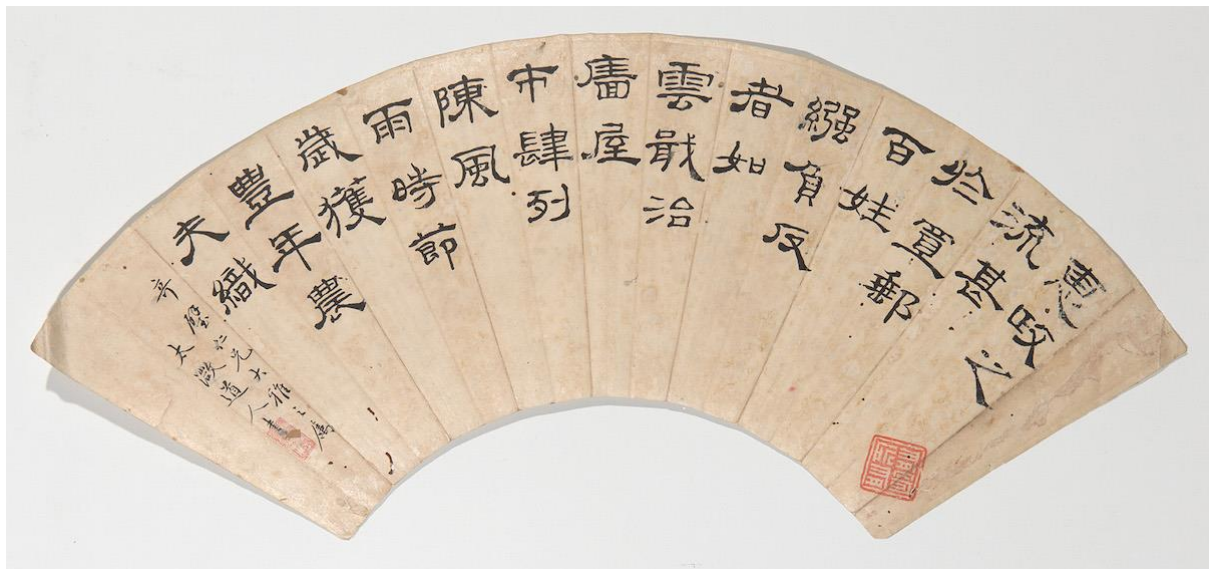 惠政之
流甚
於置郵
百姓
繦負反
者如
雲戢治
廧屋
市肆列
陳風
雨時節
歲獲
豐年農
夫織
璧仁兄大雅之屬
太道人書